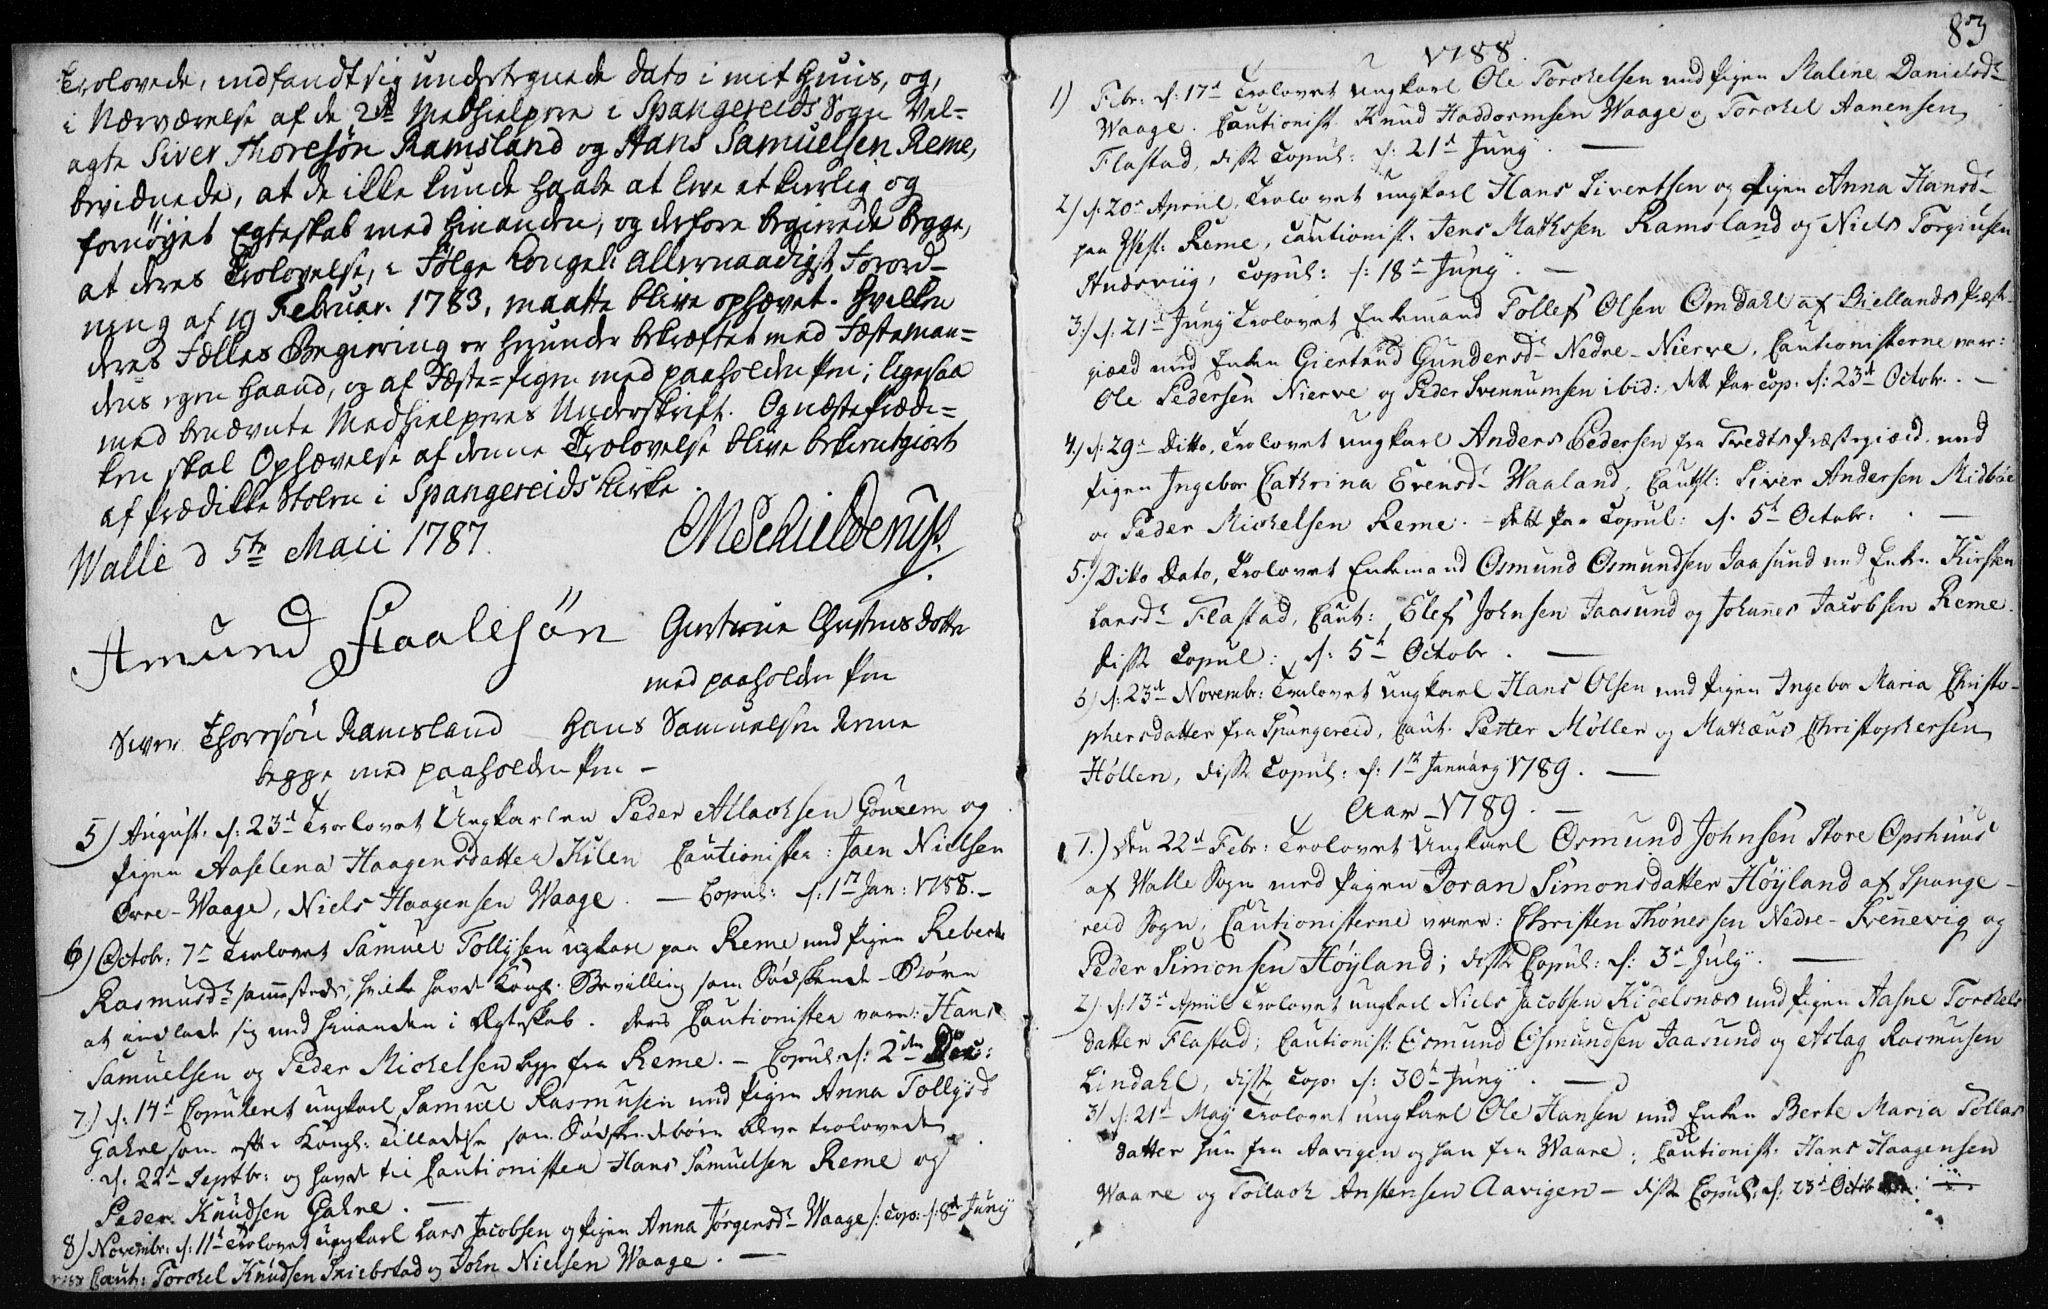 Trolovede, indfandt sig undertegnede dato i mit Huus, og,
i Nærværelse af de 2de Medhielpere i Spangereids Sogn Vel-
agte Siver Thoresøn Ramsland og Hans Samuelsen Reme,
bevidnede, at de ikke kunde haabe at leve et kierlig og
fornøyet Egteskab med hinanden, og derfore begierede begge,
at deres Trolovelse, i Følge Kongel: allernaadigst Forord-
ning af 19 Februar. 1783, maatte blive ophævet. Hvilken
deres Fælles Begiering er herunder bekræftet med Fæsteman-
dens egen Haand, og af Fæste-Pigen med paaholden Pen; ligesaa
med benævnte Medhielperes Underskrift. Og næste Præde-
ken skal Ophævelse af denne Trolovelse blive bekientgiort
af Prædikke Stolen i Spangereids Kirke.
Walle d 5te Maii 1787. CMSchielderup.
Amund Staalesøn Giertrue Christensdotter
med paaholden Pen
Siver Thoresøn Ramsland Hans Samuelsen Reme
begge med paaholden Pen –
5) August. d: 23d Trolovet Ungkarlen Peder Atlachsen Gouxem og
Pigen Aaselena Haagensdatter Kilen Cautionister: Joen Nielsen
Øvre-Waage, Niels Haagensen Waage. – Copul: d: 1te Jan: 1788. –
6) Octobr: 7d Trolovet Samuel Tollysen ugkarl paa Reme med Pigen Rebecka
Rasmusdr sammesteds, hvilke havde Kongl. Bevilling som Sødskende-Børn
at indlade sig med hinanden i Ægteskab. Deres Cautionister vare: Hans
Samuelsen og Peder Michelsen begge fra Reme. – Copul: d: 2den Dec:
7) d: 14d Copuleret ungkarl Samuel Rasmusen med Pigen Anna Tollysd
Gahre som efter Kongl: Tilladelse som Sødskendebørn bleve trolovede
d: 22d Septbr: og havde til Cautionister Hans Samuelsen Reme og
Peder Knudsen Gahre. –
8) Novembr: d: 11d Trolovet ungkarl Lars Jacobsen og Pigen Anna Jørgensdr Waage /: cop: d: 8d Juny
1788 Caut: Torchel Knudsen Skiebstad og John Nielsen Waage. –
83
1788.
1) Febr: d: 17d Trolovet ungkarl Ole Torchelsen med Pigen Malene Danielsdr
Waage. Cautionist. Knud Haddormsen Waage og Torchel Aanensen
Flastad, disse Copul: d: 21d Juny. –
2) d: 20d April, Trolovet ungkarl Hans Sivertsen og Pigen Anna Hansdr
paa Reme, Cautionist. Jens Mathssen Ramsland og Niels Torgiusen
Copul: d: 18d Juny. –
3) d: 21d Juny Trolovet Enkemand Tollef Olsen Omdahl af Biellands Præst-
gield med Enken Giertrud Gundersdr Nedre-Nierve, Cautionisterne var:
Ole Pedersen Nierve og Peder Svennumsen ibid: dette Par cop: d: 23d Octobr. –
4) d: 29d Ditto, Trolovet ungkarl Anders Pedersen fra Tvedts Præstegield med
Pigen Ingebor Cathrina Evensdr Haaland, Caut: Siver Andersen Midbøe
og Peder Michelsen Reme. – dette Par Copul: d. 5t Octobr: . –
5.) Ditto Dato, Trolovet Enkemand Osmund Osmundsen Jaasund med Enken Kirsten
Larsdr Flastad, Caut: Elef Johnsen Jaasund og Johannes Jacobsen Reme.
disse Copul: d: 5t Octobr. –
6) d: 23d Novembr: Trolovet ungkarl Hans Olsen med Pigen Ingebor Maria Christo-
phersdatter fra Spangereid, Caut. Petter Møller og Mathæus Christophersen
Høllen, disse Copul: d: 1te January 1789. –
Aar 1789. –
1.) Den 22d Febr: Trolovet Ungkarl Osmund Johnsen Store Opshuus
af Walle Sogn med Pigen Joran Simonsdatter Høyland af Spange-
reid Sogn; Cautionisterne vare: Christen Thønessen Nedre-Svenevig og
Peder Simonsen Høyland; disse Copul: d: 3d July. –
2) d: 13d April Trolovet ungkarl Niels Jacobsen Kigelsnæs med Pigen Aasne Torchels
datter Flastad; Cautionist: Osmund Osmundsen Jaasund og Aslag Rasmusen
Lindahl, disse Cop: d: 30d Juny. –
3) d: 21d May Trolovet ungkarl Ole Hansen med Enken Berte Maria Tollas
datter hun fra Aavigen og han fra Waare; Cautionist. Hans Haagensen
Waare og Tollach Anstensen Aavigen – disse Copul: d: 23d Octob